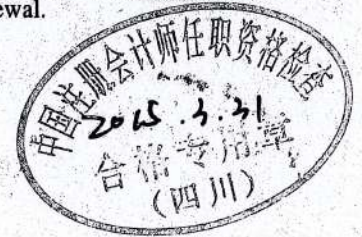 ewal.
中国注册会计师任职资格检查
2015.3.31
合格专用章
(四川)